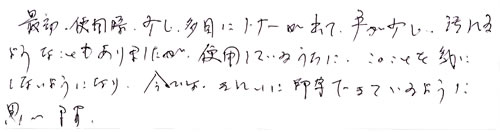 最初、使用際、少し多目にトナーが出て、手が少し、汚れる
ようなこともありましたが、使用しているうちに、
しないようになり、今では、きれいに印字できているように
思います。